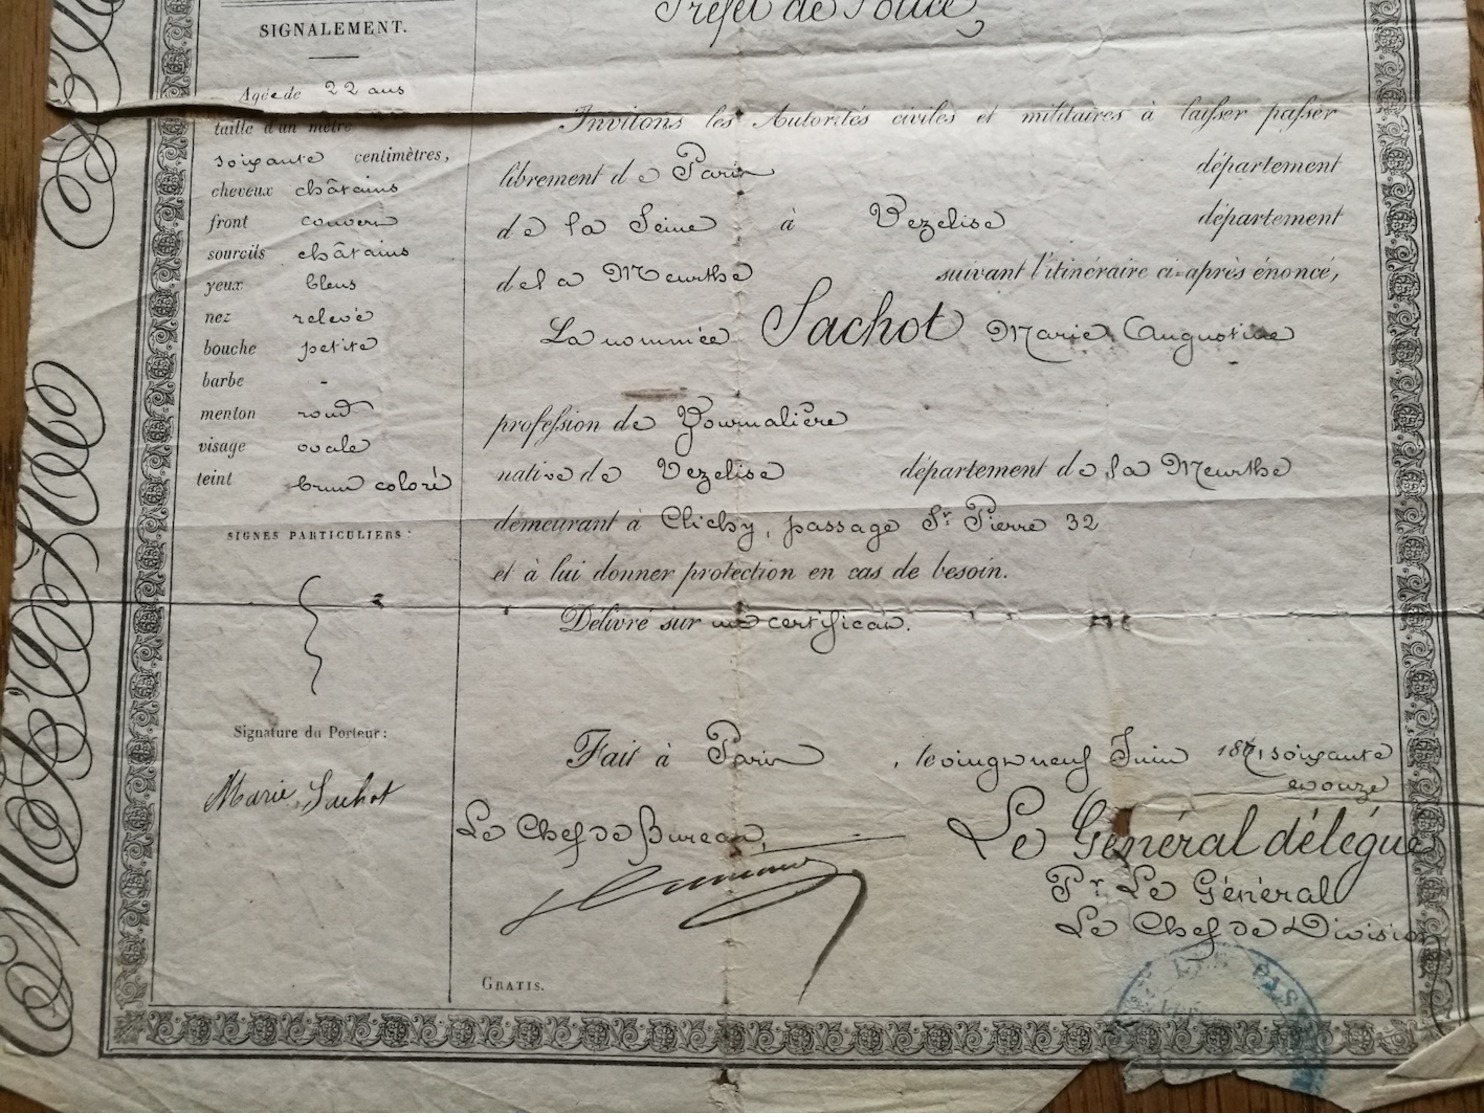 Préfet de Police,
SIGNALEMENT.
Agée de 22 ans
taille d'un mètre
soixante centimètres,
cheveux châtains
front couvert
sourcils châtains
yeux bleus
nez relevé
bouche petite
barbe -
menton rond
visage ovale
teint brun coloré
SIGNES PARTICULIERS :
Signature du Porteur :
Marie Sachot
Invitons les Autorités civiles et militaires à laisser passer
librement de Paris département
de la Seine à Vezelise département
de la Meurthe suivant l'itinéraire ci-après énoncé,
La nommée Sachot Marie Augustine
profession de Journalière
native de Vezelise département de la Meurthe
demeurant à Clichy, passage St Pierre 32
et à lui donner protection en cas de besoin.
Délivré sur un certificat.
Fait à Paris, le vingt neuf Juin 1871 soixante
et onze
Le Chef de Bureau,
Le Général délégué
Pr Le Général
Le Chef de Division
GRATIS.